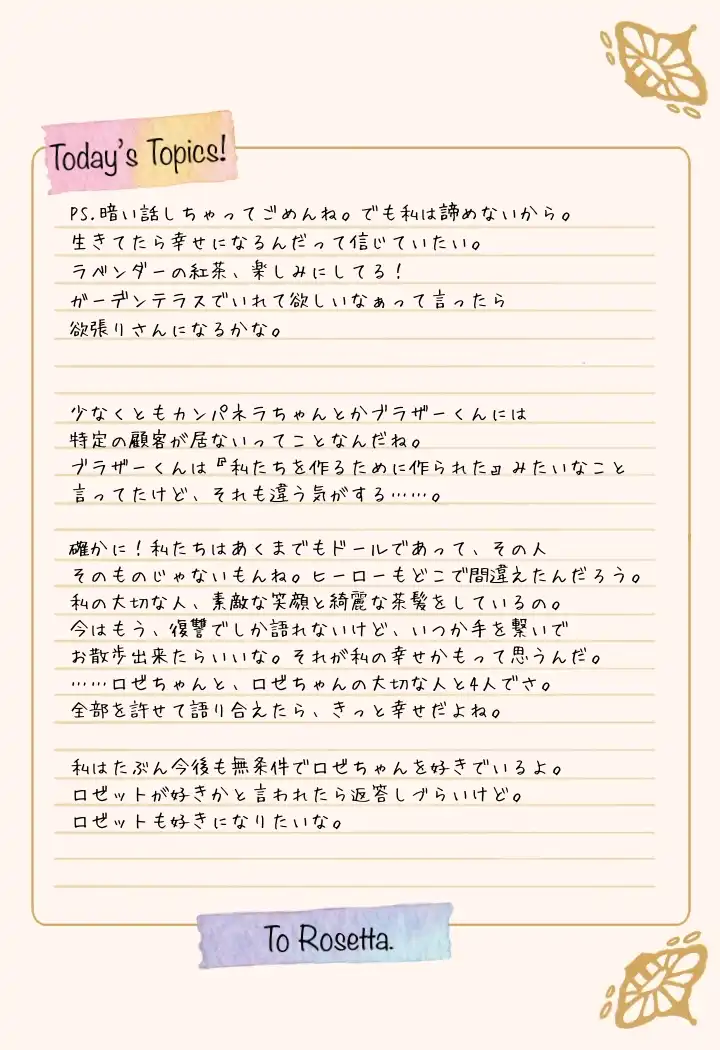 Today's Topics!
PS.暗い話しちゃってごめんね。でも私は諦めないから。
生きてたら幸せになるんだって信じていたい。
ラベンダーの紅茶、楽しみにしてる！
ガーデンテラスでいれて欲しいなぁって言ったら
欲張りさんになるかな。
少なくともカンパネラちゃんとかブラザーくんには
特定の顧客が居ないってことなんだね。
ブラザーくんは『私たちを作るために作られた』みたいなこと
言ってたけど、それも違う気がする……。
確かに！私たちはあくまでもドールであって、その人
そのものじゃないもんね。ヒーローもどこで間違えたんだろう。
私の大切な人、素敵な笑顔と綺麗な茶髪をしているの。
今はもう、復讐でしか語れないけど、いつか手を繋いで
お散歩出来たらいいな。それが私の幸せかもって思うんだ。
……ロゼちゃんと、ロゼちゃんの大切な人と4人でさ。
全部を許せて語り合えたら、きっと幸せだよね。
私はたぶん今後も無条件でロゼちゃんを好きでいるよ。
ロゼットが好きかと言われたら返答しづらいけど。
ロゼットも好きになりたいな。
To Rosetta.